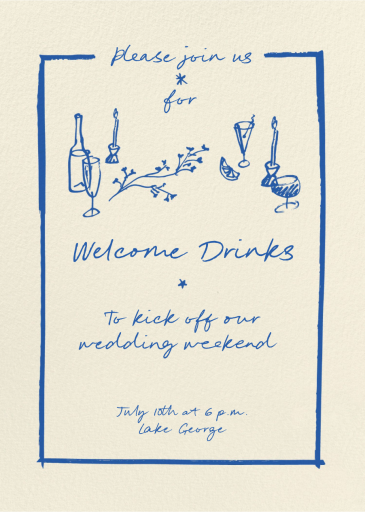 please join us
for
Welcome Drinks
To kick off our
wedding weekend
July 10th at 6 p.m.
Lake George